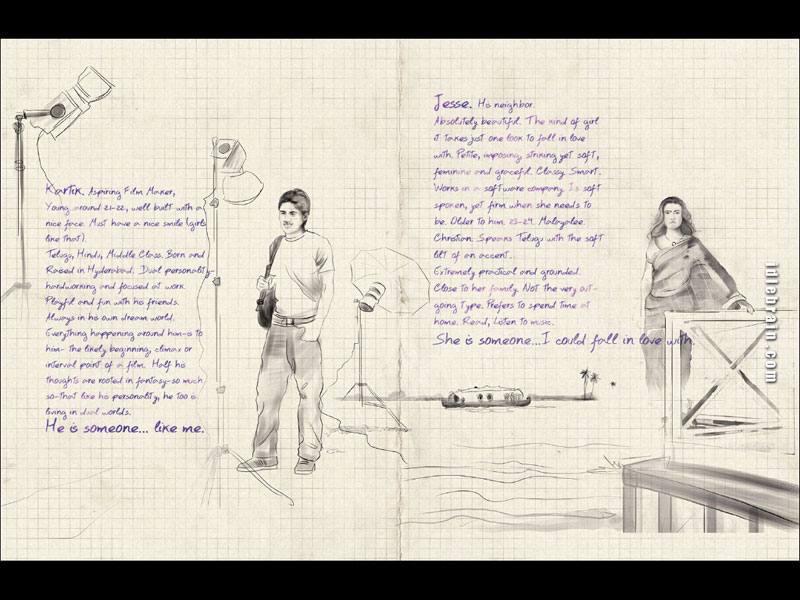 Kartik. Aspiring Film Maker,
Young around 21-22, well built with a
nice face. Must have a nice smile (girls
like that).
Telugu, Hindu, Middle Class. Born and
Raised in Hyderabad. Dual personality-
hardworking and focused at work.
Playful and fun with his friends.
Always in his own dream world.
Everything happening around him-is to
him- the likely beginning, climax or
interval point of a film. Half his
thoughts are rooted in fantasy-so much
so-that like his personality, he too is
living in dual worlds.
He is someone... like me.
Jesse. His neighbor.
Absolutely beautiful. The kind of girl
it takes just one look to fall in love
with. Petite, imposing, striking yet soft,
feminine and graceful. Classy. Smart.
Works in a software company. Is soft
spoken, yet firm when she needs to
be. Older to him. 23-24. Malayalee.
Christian. Speaks Telugu with the soft
lilt of an accent..
Extremely practical and grounded.
Close to her family. Not the very out-
going type. Prefers to spend time at
home. Read, Listen to music.
She is someone...I could fall in love with.
idlebrain.com